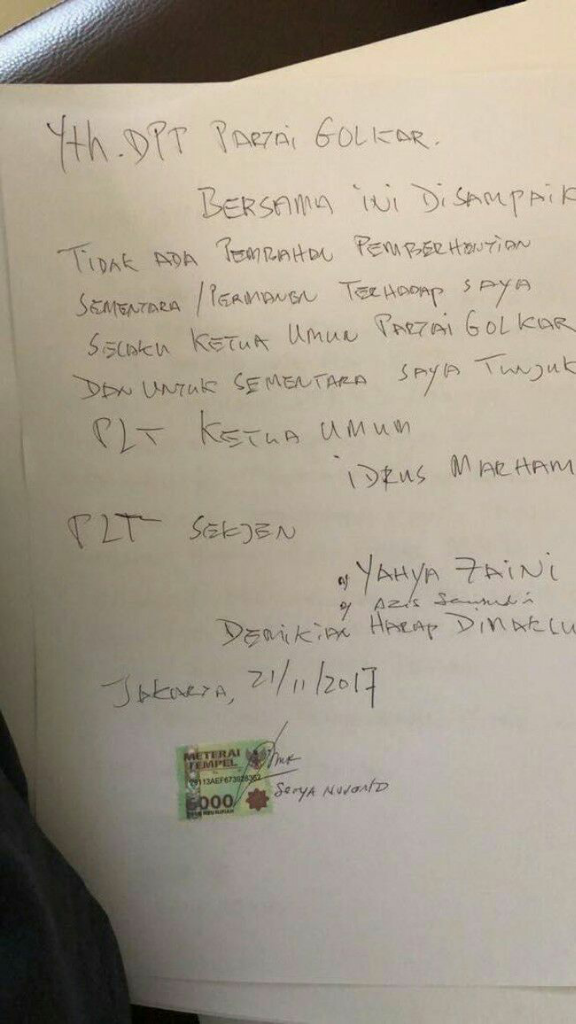 Yth. DPT PARTAI GOLKAR.
BERSAMA INI DISAMPAIK
TIDAK ADA PEMBAHAN PEMBERHENTIAN
SEMENTARA / PERMANEN TERHADAP SAYA
SELAKU KETUA UMUM PARTAI GOLKAR
DAN UNTUK SEMENTARA SAYA TUNJUK
PLT KETUA UMUM
IDRUS MARHAM
PLT SEKJEN
YAHYA ZAINI
AZIS
DEMIKIAN HARAP DIMAKLU
JAKARTA, 21/11/2017
METERAI
TEMPEL
6000
SETYA NOVANTO